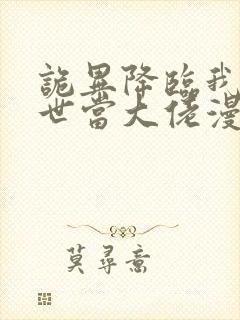 詭異降臨我
世當大佬漫
莫尋喬